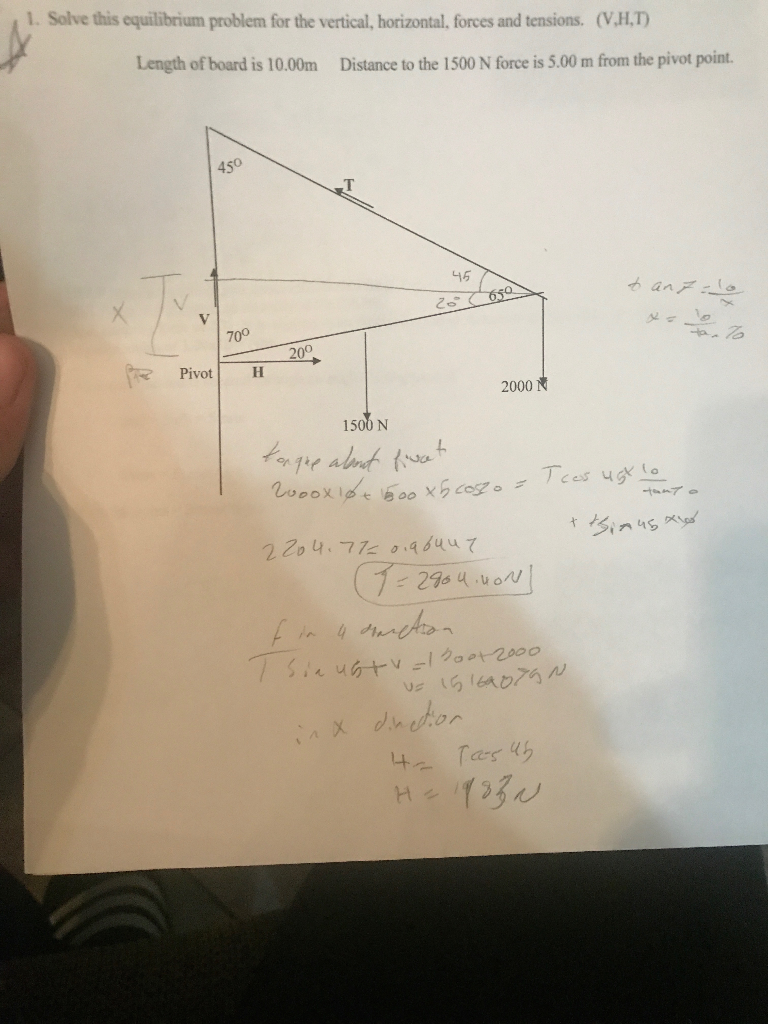 1. Solve this equilibrium problem for the vertical, horizontal, forces and tensions. (V,H,T)
Length of board is 10.00m Distance to the 1500 N force is 5.00 m from the pivot point.
45⁰
T
45
20⁰ 65⁰
x V
V
70⁰
20⁰
Pivot H
2000 N
1500 N
tan 7 = 10/x
x = 10/tan 70
torque about pivot
2000 x 10 + 1500 x 5 cos20 = T cos 45 x 10/tan70
+ tsin 45 x 10
2204.77 = 0.9644T
T = 2804.40N
f in y direction
T sin 45 + V = 1500 + 2000
in x direction
H = T cos 45
H = 1983 N